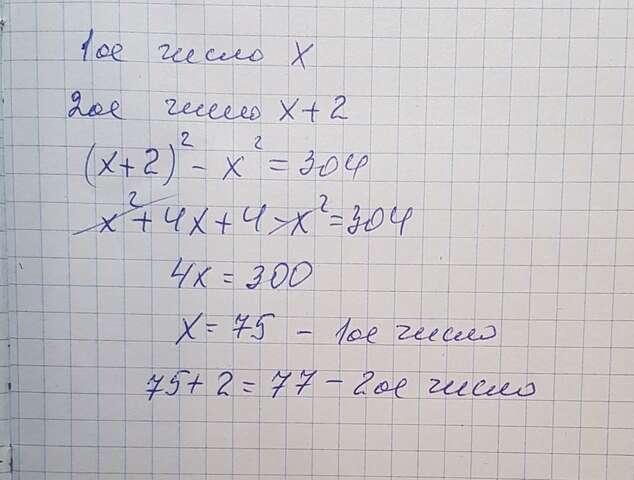 1ое число x
2ое число x+2
(x+2)² - x² = 304
x² + 4x + 4 - x² = 304
4x = 300
x = 75 - 1ое число
75 + 2 = 77 - 2ое число